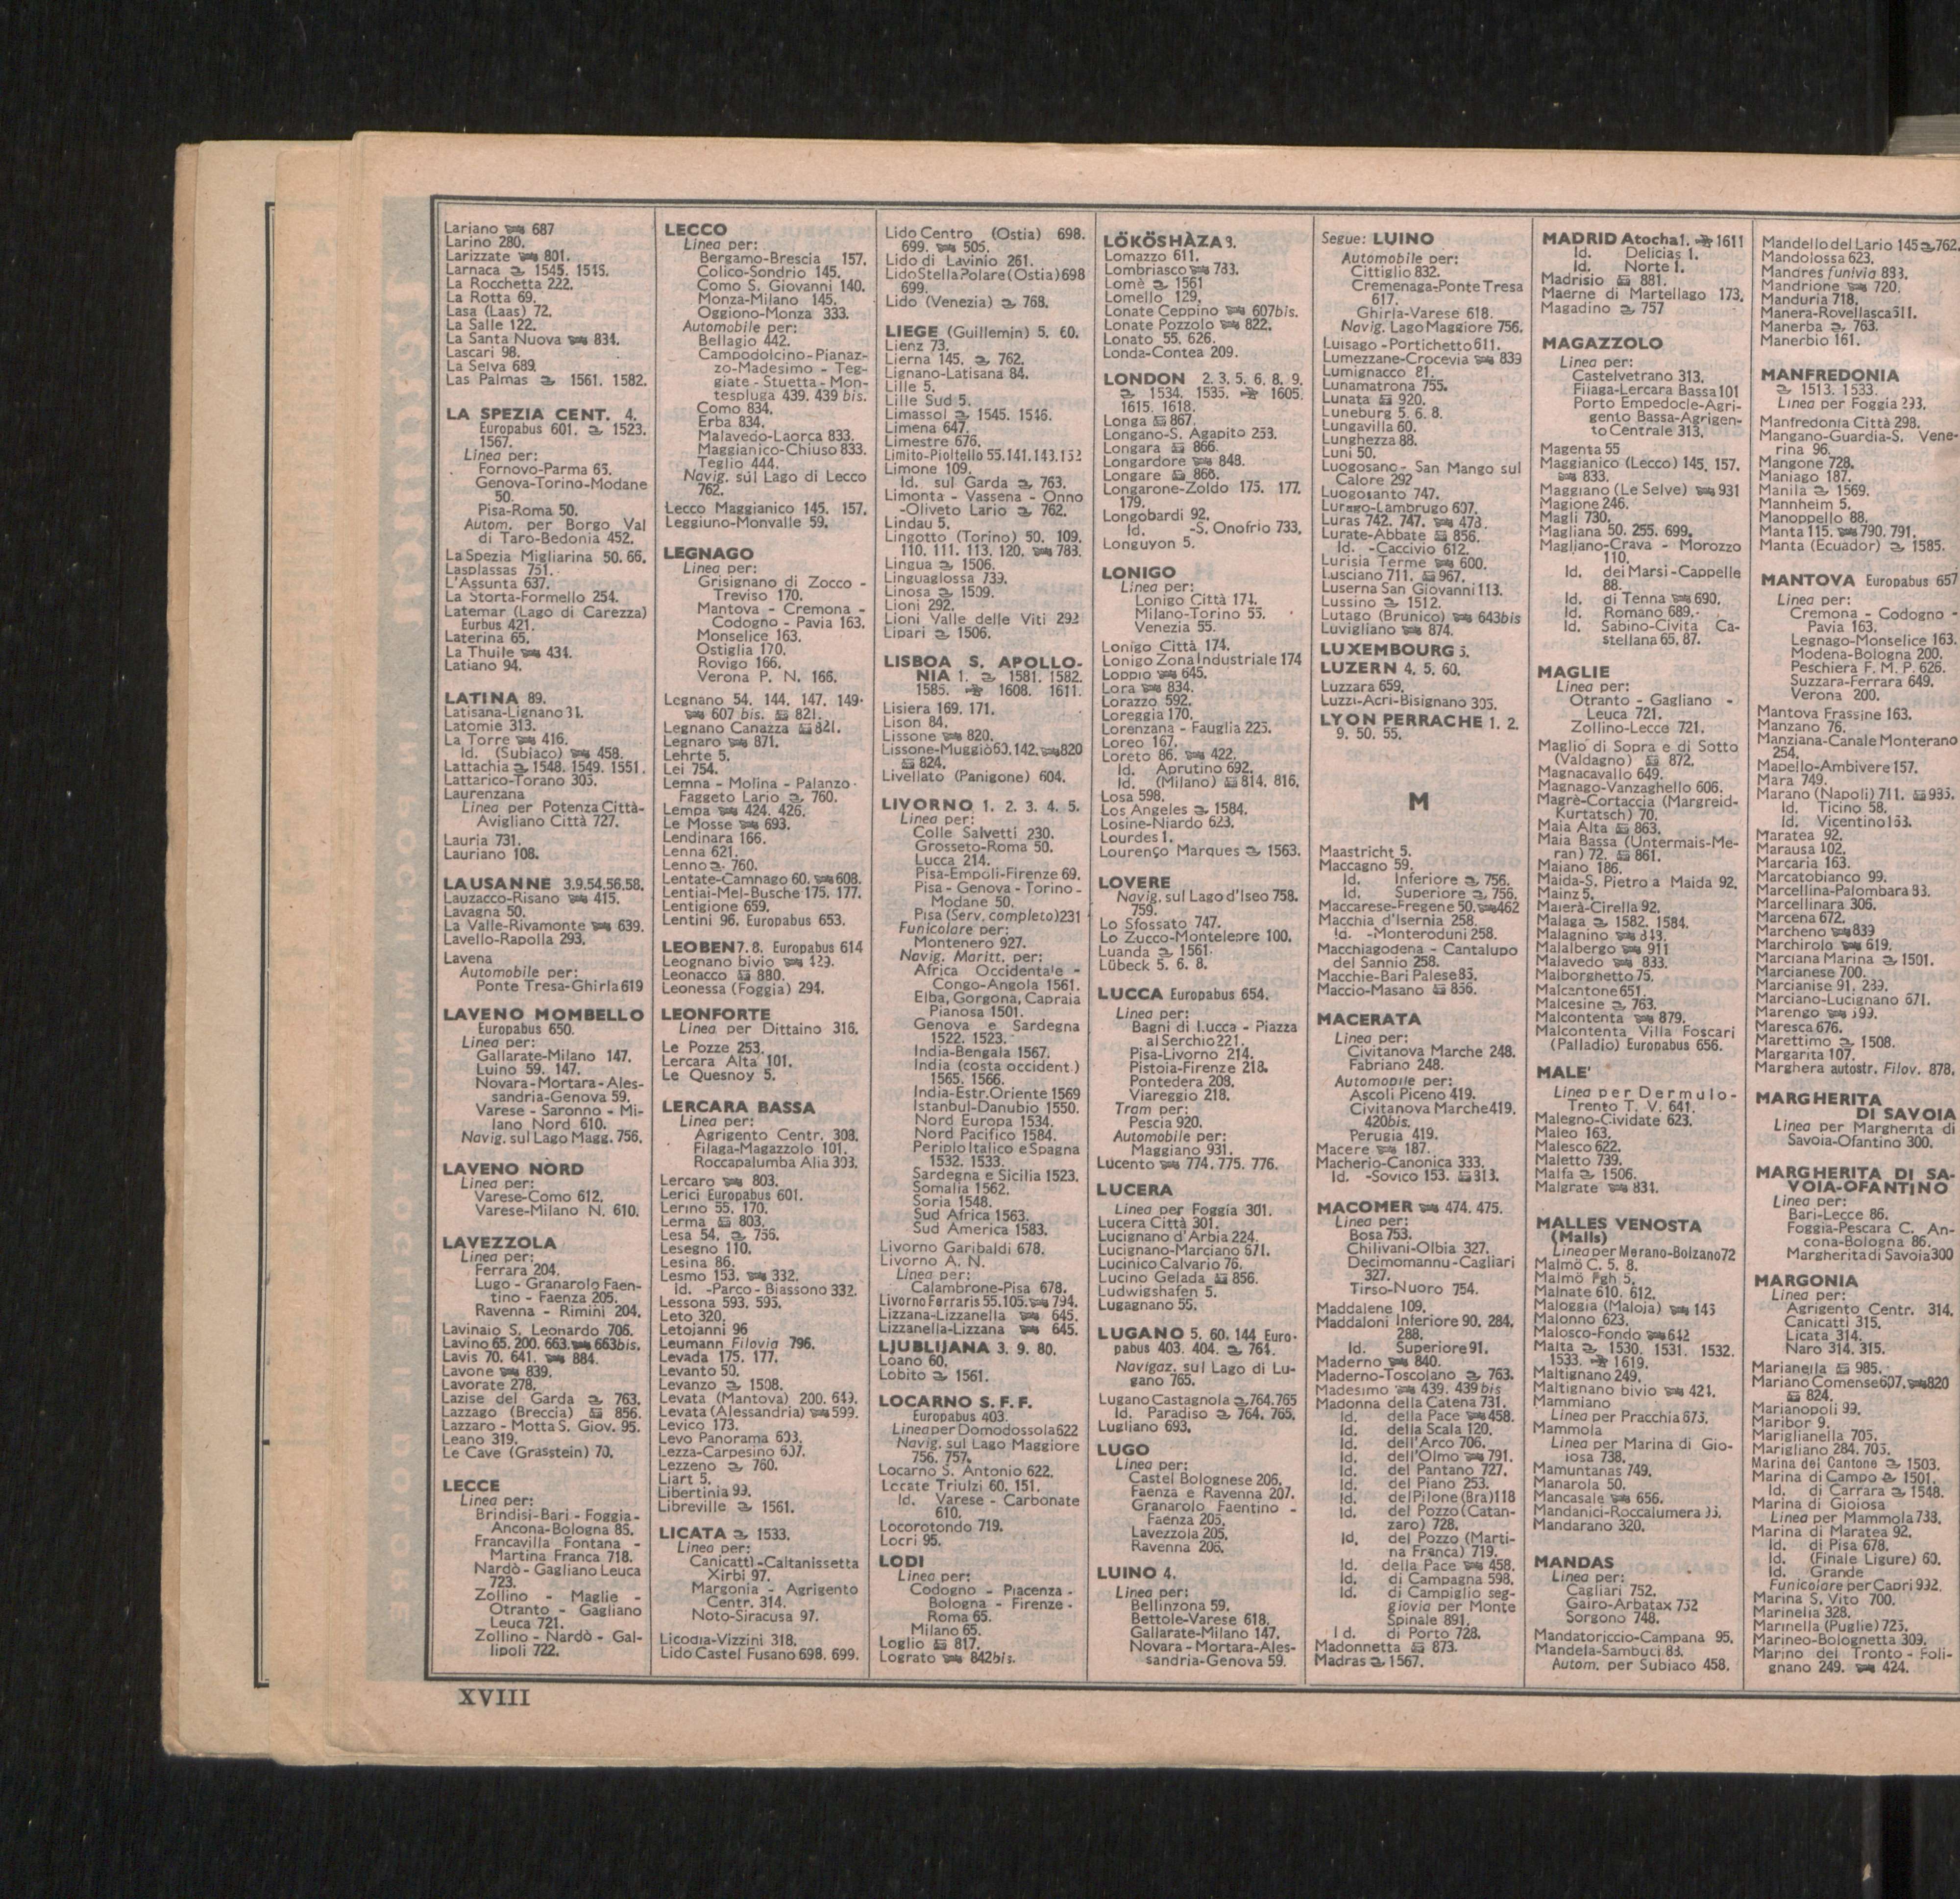 Lariano 687
Larino 280.
Larizzate 801.
Larnaca 1545. 1546.
La Rocchetta 222.
La Rotta 69.
Lasa (Laas) 72.
La Salle 122.
La Santa Nuova 834.
Lascari 98.
La Selva 689.
Las Palmas 1561. 1582.
LA SPEZIA CENT. 4.
Europabus 601. 1523.
1567.
Linea per:
Fornovo-Parma 65.
Genova-Torino-Modane
50.
Pisa-Roma 50.
Autom. per Borgo Val
di Taro-Bedonia 452.
La Spezia Migliarina 50. 66.
Lasplassas 751.
L'Assunta 637.
La Storta-Formello 254.
Latemar (Lago di Carezza)
Eurbus 421.
Laterina 65.
La Thuile 434.
Latiano 94.
LATINA 89.
Latisana-Lignano
Latomie 313.
La Torre 416.
Id. (Subiaco) 458.
Lattachia 1548. 1549. 1551.
Lattarico-Torano 305.
Laurenzana
Linea per Potenza Città-
Avigliano Città 727.
Lauria 731.
Lauriano 108.
LAUSANNE 3.9.54.56.58.
Lauzacco-Risano 415.
Lavagna 50.
La Valle-Rivamonte 639.
Lavello-Rapolla 293.
Lavena
Automobile per:
Ponte Tresa-Ghirla 619
LAVENO MOMBELLO
Europabus 650.
Linea per:
Gallarate-Milano 147.
Luino 59. 147.
Novara-Mortara-Ales-
sandria-Genova 59.
Varese - Saronno - Mi-
lano Nord 610.
Navig. sul Lago Magg. 756.
LAVENO NORD
Linea per:
Varese-Como 612.
Varese-Milano N. 610.
LAVEZZOLA
Linea per:
Ferrara 204.
Lugo - Granarolo Faen-
tino - Faenza 205.
Ravenna - Rimini 204.
Lavinaio S. Leonardo 706.
Lavino 65. 200. 663. 663bis.
Lavis 70. 641. 884.
Lavone 839.
Lavorate 278.
Lazise del Garda 763.
Lazzago (Breccia) 856.
Lazzaro - Motta S. Giov. 95.
Leano 319.
Le Cave (Grasstein) 70.
LECCE
Linea per:
Brindisi-Bari - Foggia -
Ancona-Bologna 86.
Francavilla Fontana -
Martina Franca 718.
Nardò - Gagliano Leuca
723.
Zollino - Maglie -
Otranto - Gagliano
Leuca 721.
Zollino - Nardò - Gal-
lipoli 722.
LECCO
Linea per:
Bergamo-Brescia 157.
Colico-Sondrio 145.
Como S. Giovanni 140.
Monza-Milano 145.
Oggiono-Monza 333.
Automobile per:
Bellagio 442.
Campodolcino-Pianaz-
zo-Madesimo - Teg-
giate - Stuetta - Mon-
tespluga 439. 439 bis.
Como 834.
Erba 834.
Malavedo-Laorca 833.
Maggianico-Chiuso 833.
Teglio 444.
Navig. sul Lago di Lecco
762.
Lecco Maggianico 145. 157.
Leggiuno-Monvalle 59.
LEGNAGO
Linea per:
Grisignano di Zocco -
Treviso 170.
Mantova - Cremona -
Codogno - Pavia 163.
Monselice 163.
Ostiglia 170.
Rovigo 166.
Verona P. N. 166.
Legnano 54. 144. 147. 149.
607 bis. 821.
Legnano Canazza 821.
Legnaro 871.
Lehrte 5.
Lei 754.
Lemna - Molina - Palanzo -
Faggeto Lario 760.
Lempa 424. 426.
Le Mosse 693.
Lendinara 166.
Lenna 621.
Lenno 760.
Lentate-Camnago 60. 608.
Lentiai-Mel-Busche 175. 177.
Lentigione 659.
Lentini 96. Europabus 653.
LEOBEN 7. 8. Europabus 614
Leognano bivio 429.
Leonacco 880.
Leonessa (Foggia) 294.
LEONFORTE
Linea per Dittaino 316.
Le Pozze 253.
Lercara Alta 101.
Le Quesnoy 5.
LERCARA BASSA
Linea per:
Agrigento Centr. 308.
Filaga-Magazzolo 101.
Roccapalumba Alia 303.
Lercaro 803.
Lerici Europabus 601.
Lerino 55. 170.
Lerma 803.
Lesa 54. 756.
Lesegno 110.
Lesina 86.
Lesmo 153. 332.
Id. -Parco - Biassono 332.
Lessona 593. 595.
Leto 320.
Letojanni 96
Leumann Filovia 796.
Levada 175. 177.
Levanto 50.
Levanzo 1508.
Levata (Mantova) 200. 649.
Levata (Alessandria) 599.
Levico 173.
Levo Panorama 603.
Lezza-Carpesino 607.
Lezzeno 760.
Liart 5.
Libertinia 99.
Libreville 1561.
LICATA 1533.
Linea per:
Canicattì-Caltanissetta
Xirbi 97.
Margonia - Agrigento
Centr. 314.
Noto-Siracusa 97.
Licodia-Vizzini 318.
Lido Castel Fusano 698. 699.
Lido Centro (Ostia) 698.
699. 505.
Lido di Lavinio 261.
Lido Stella Polare (Ostia) 698
699.
Lido (Venezia) 768.
LIEGE (Guillemin) 5. 60.
Lienz 73.
Lierna 145. 762.
Lignano-Latisana 84.
Lille 5.
Lille Sud 5.
Limassol 1545. 1546.
Limena 647.
Limestre 676.
Limito-Pioltello 55.141.143.152
Limone 109.
Id. sul Garda 763.
Limonta - Vassena - Onno
-Oliveto Lario 762.
Lindau 5.
Lingotto (Torino) 50. 109.
110. 111. 113. 120. 783.
Lingua 1506.
Linguaglossa 739.
Linosa 1509.
Lioni 292.
Lioni Valle delle Viti 292
Lipari 1506.
LISBOA S. APOLLO-
NIA 1. 1581. 1582.
1585. 1608. 1611.
Lisiera 169. 171.
Lison 84.
Lissone 820.
Lissone-Muggiò 60.142. 820
824.
Livellato (Panigone) 604.
LIVORNO 1. 2. 3. 4. 5.
Linea per:
Colle Salvetti 230.
Grosseto-Roma 50.
Lucca 214.
Pisa-Empoli-Firenze 69.
Pisa - Genova - Torino -
Modane 50.
Pisa (Serv. completo) 231
Funicolare per:
Montenero 927.
Navig. Maritt. per:
Africa Occidentale -
Congo-Angola 1561.
Elba, Gorgona, Capraia
Pianosa 1501.
Genova e Sardegna
1522. 1523.
India-Bengala 1567.
India (costa occident.)
1565. 1566.
India-Estr.Oriente 1569
Istanbul-Danubio 1550.
Nord Europa 1534.
Nord Pacifico 1584.
Periplo Italico e Spagna
1532. 1533.
Sardegna e Sicilia 1523.
Somalia 1562.
Soria 1548.
Sud Africa 1563.
Sud America 1583.
Livorno Garibaldi 678.
Livorno A. N.
Linea per:
Calambrone-Pisa 678.
Livorno Ferraris 55.105. 794.
Lizzana-Lizzanella 645.
Lizzanella-Lizzana 645.
LJUBLIJANA 3. 9. 80.
Loano 60.
Lobito 1561.
LOCARNO S. F. F.
Europabus 403.
Linea per Domodossola 622
Navig. sul Lago Maggiore
756. 757.
Locarno S. Antonio 622.
Locate Triulzi 60. 151.
Id. Varese - Carbonate
610.
Locorotondo 719.
Locri 95.
LODI
Linea per:
Codogno - Piacenza -
Bologna - Firenze -
Roma 65.
Milano 65.
Loglio 817.
Lograto 842bis.
LÖKÖSHÀZA 9.
Lomazzo 611.
Lombriasco 783.
Lomè 1561
Lomello 129.
Lonate Ceppino 607bis.
Lonate Pozzolo 822.
Lonato 55. 626.
Londa-Contea 209.
LONDON 2. 3. 5. 6. 8. 9.
1534. 1535. 1605.
1615. 1618.
Longa 867.
Longano-S. Agapito 253.
Longara 866.
Longardore 848.
Longare 866.
Longarone-Zoldo 175. 177.
179.
Longobardi 92.
Id. -S. Onofrio 733.
Longuyon 5.
LONIGO
Linea per:
Lonigo Città 174.
Milano-Torino 55.
Venezia 55.
Lonigo Città 174.
Lonigo Zona Industriale 174
Loppio 645.
Lora 834.
Lorazzo 592.
Loreggia 170.
Lorenzana - Fauglia 225.
Loreo 167.
Loreto 86. 422.
Id. Aprutino 692.
Id. (Milano) 814. 816.
Losa 598.
Los Angeles 1584.
Losine-Niardo 623.
Lourdes 1.
Lourenço Marques 1563.
LOVERE
Navig. sul Lago d'Iseo 758.
759.
Lo Sfossato 747.
Lo Zucco-Montelepre 100.
Luanda 1561.
Lübeck 5. 6. 8.
LUCCA Europabus 654.
Linea per:
Bagni di Lucca - Piazza
al Serchio 221.
Pisa-Livorno 214.
Pistoia-Firenze 218.
Pontedera 208.
Viareggio 218.
Tram per:
Pescia 920.
Automobile per:
Maggiano 931.
Lucento 774. 775. 776.
LUCERA
Linea per Foggia 301.
Lucera Città 301.
Lucignano d'Arbia 224.
Lucignano-Marciano 671.
Lucinico Calvario 76.
Lucino Gelada 856.
Ludwigshafen 5.
Lugagnano 55.
LUGANO 5. 60. 144 Euro-
pabus 403. 404. 764.
Navigaz. sul Lago di Lu-
gano 765.
Lugano Castagnola 764.765
Id. Paradiso 764. 765.
Lugliano 693.
LUGO
Linea per:
Castel Bolognese 206.
Faenza e Ravenna 207.
Granarolo Faentino -
Faenza 205.
Lavezzola 205.
Ravenna 206.
LUINO 4.
Linea per:
Bellinzona 59.
Bettole-Varese 618.
Gallarate-Milano 147.
Novara - Mortara-Ales-
sandria-Genova 59.
Segue: LUINO
Automobile per:
Cittiglio 832.
Cremenaga-Ponte Tresa
617.
Ghirla-Varese 618.
Navig. Lago Maggiore 756.
Luisago - Portichetto 611.
Lumezzane-Crocevia 839
Lumignacco 81.
Lunamatrona 755.
Lunata 920.
Luneburg 5. 6. 8.
Lungavilla 60.
Lunghezza 88.
Luni 50.
Luogosano - San Mango sul
Calore 292
Luogosanto 747.
Lurago-Lambrugo 607.
Luras 742. 747. 473.
Lurate-Abbate 856.
Id. -Caccivio 612.
Lurisia Terme 600.
Lusciano 711. 967.
Luserna San Giovanni 113.
Lussino 1512.
Lutago (Brunico) 643bis
Luvigliano 874.
LUXEMBOURG 5.
LUZERN 4. 5. 60.
Luzzara 659.
Luzzi-Acri-Bisignano 305.
LYON PERRACHE 1. 2.
9. 50. 55.
M
Maastricht 5.
Maccagno 59.
Id. Inferiore 756.
Id. Superiore 756.
Maccarese-Fregene 50. 462
Macchia d'Isernia 258.
Id. -Monteroduni 258.
Macchiagodena - Cantalupo
del Sannio 258.
Macchie-Bari Palese 86.
Maccio-Masano 856.
MACERATA
Linea per:
Civitanova Marche 248.
Fabriano 248.
Automobile per:
Ascoli Piceno 419.
Civitanova Marche 419.
420bis.
Perugia 419.
Macere 187.
Macherio-Canonica 333.
Id. -Sovico 153. 813.
MACOMER 474. 475.
Linea per:
Bosa 753.
Chilivani-Olbia 327.
Decimomannu-Cagliari
327.
Tirso-Nuoro 754.
Maddalene 109.
Maddaloni Inferiore 90. 284.
288.
Id. Superiore 91.
Maderno 840.
Maderno-Toscolano 763.
Madesimo 439. 439 bis
Madonna della Catena 731.
Id. della Pace 458.
Id. della Scala 120.
Id. dell'Arco 706.
Id. dell'Olmo 791.
Id. del Pantano 727.
Id. del Piano 253.
Id. del Pilone (Bra) 118
Id. del Pozzo (Catan-
zaro) 728.
Id. del Pozzo (Marti-
na Franca) 719.
Id. della Pace 458.
Id. di Campagna 598.
Id. di Campiglio seg-
giovia per Monte
Spinale 891.
Id. di Porto 728.
Madonnetta 873.
Madras 1567.
MADRID Atocha 1. 1611
Id. Delicias 1.
Id. Norte 1.
Madrisio 881.
Maerne di Martellago 173.
Magadino 757
MAGAZZOLO
Linea per:
Castelvetrano 313.
Filaga-Lercara Bassa 101
Porto Empedocle-Agri-
gento Bassa-Agrigen-
to Centrale 313.
Magenta 55
Maggianico (Lecco) 145. 157.
833.
Maggiano (Le Selve) 931
Magione 246.
Magli 730.
Magliana 50. 255. 699.
Magliano-Crava - Morozzo
110.
Id. dei Marsi - Cappelle
88.
Id. di Tenna 690.
Id. Romano 689.
Id. Sabino-Civita Ca-
stellana 65. 87.
MAGLIE
Linea per:
Otranto - Gagliano -
Leuca 721.
Zollino-Lecce 721.
Maglio di Sopra e di Sotto
(Valdagno) 872.
Magnacavallo 649.
Magnago-Vanzaghello 606.
Magrè-Cortaccia (Margreid-
Kurtatsch) 70.
Maia Alta 863.
Maia Bassa (Untermais-Me-
ran) 72. 861.
Maiano 186.
Maida-S. Pietro a Maida 92.
Mainz 5.
Maierà-Cirella 92.
Malaga 1582. 1584.
Malagnino
Malalbergo 911
Malavedo 833.
Malborghetto 75.
Malcantone 651.
Malcesine 763.
Malcontenta 879.
Malcontenta Villa Foscari
(Palladio) Europabus 656.
MALE'
Linea per Dermulo-
Trento T. V. 641.
Malegno-Cividate 623.
Maleo 163.
Malesco 622.
Maletto 739.
Malfa 1506.
Malgrate 834.
MALLES VENOSTA
(Malls)
Linea per Merano-Bolzano 72
Malmö C. 5. 8.
Malmö Fgh 5.
Malnate 610. 612.
Maloggia (Maloja) 143
Malonno 623.
Malosco-Fondo 642
Malta 1530. 1531. 1532.
1533. 1619.
Maltignano 249.
Maltignano bivio 424.
Mammiano
Linea per Pracchia 676.
Mammola
Linea per Marina di Gio-
iosa 738.
Mamuntanas 749.
Manarola 50.
Mancasale 656.
Mandanici-Roccalumera
Mandarano 320.
MANDAS
Linea per:
Cagliari 752.
Gairo-Arbatax 752
Sorgono 748.
Mandatoriccio-Campana 95.
Mandela-Sambuci 88.
Autom. per Subiaco 458.
Mandello del Lario 145 762.
Mandolossa 623.
Mandres funivia 893.
Mandrione 720.
Manduria 718.
Manera-Rovellasca 611.
Manerba 763.
Manerbio 161.
MANFREDONIA
1513. 1533.
Linea per Foggia 298.
Manfredonia Città 298.
Mangano-Guardia-S. Vene-
rina 96.
Mangone 728.
Maniago 187.
Manila 1569.
Mannheim 5.
Manoppello 88.
Manta 115. 790. 791.
Manta (Ecuador) 1585.
MANTOVA Europabus 657
Linea per:
Cremona - Codogno -
Pavia 163.
Legnago-Monselice 163.
Modena-Bologna 200.
Peschiera F. M. P. 626.
Suzzara-Ferrara 649.
Verona 200.
Mantova Frassine 163.
Manzano 76.
Manziana-Canale Monterano
254.
Mapello-Ambivere 157.
Mara 749.
Marano (Napoli) 711. 985.
Id. Ticino 58.
Id. Vicentino 163.
Maratea 92.
Marausa 102.
Marcaria 163.
Marcatobianco 99.
Marcellina-Palombara 88.
Marcellinara 306.
Marcena 672.
Marcheno 839
Marchirolo 619.
Marciana Marina 1501.
Marcianese 700.
Marcianise 91. 289.
Marciano-Lucignano 671.
Marengo 599.
Maresca 676.
Marettimo 1508.
Margarita 107.
Marghera autostr. Filov. 878.
MARGHERITA
DI SAVOIA
Linea per Margherita di
Savoia-Ofantino 300.
MARGHERITA DI SA-
VOIA-OFANTINO
Linea per:
Bari-Lecce 86.
Foggia-Pescara C. An-
cona-Bologna 86.
Margherita di Savoia 300
MARGONIA
Linea per:
Agrigento Centr. 314.
Canicatti 315.
Licata 314.
Naro 314. 315.
Marianella 985.
Mariano Comense 607. 820
824.
Marianopoli 99.
Maribor 9.
Mariglianella 705.
Marigliano 284. 705.
Marina del Cantone 1503.
Marina di Campo 1501.
Id. di Carrara 1548.
Marina di Gioiosa
Linea per Mammola 738.
Marina di Maratea 92.
Id. di Pisa 678.
Id. (Finale Ligure) 60.
Id. Grande
Funicolare per Capri 932.
Marina S. Vito 700.
Marinella 328.
Marinella (Puglie) 725.
Marineo-Bolognetta 309.
Marino del Tronto - Foli-
gnano 249. 424.
XVIII